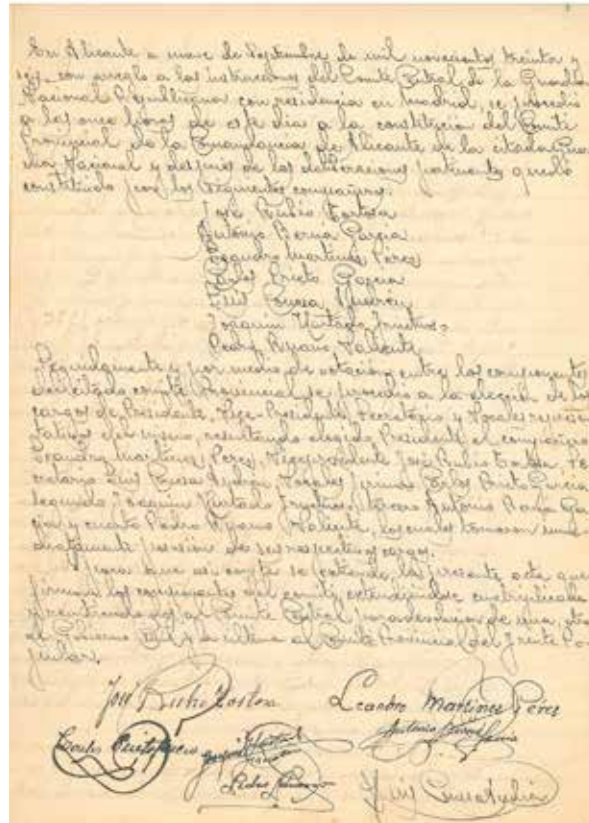 En Alicante a nueve de Septiembre de mil novecientos treinta y
seis con arreglo a las instrucciones del Comité Central de la Guardia
Nacional Republicana con residencia en Madrid, se procedió
a las once horas de este dia a la constitución del Comité
Provincial de la Comandancia de Alicante de la citada Guar
dia Nacional y despues de las deliberaciones quedó
constituido por los siguientes compañeros:
José Rubio Tortosa
Antonio Berna Garcia
Leandro Martines Pérez
Carlos Prieto Garcia
Luis
Joaquin Hurtado
Pedro Valiente
y por medio de votacion entre los componentes
del citado comité Provincial se procedió a la elección de los
cargos de Presidente, Vice-Presidente, Secretario y Vocales represen
tativos del mismo, resultando elegido Presidente el compañero
Leandro Martines Peres, Vicepresidente José Rubio Tortosa, Se
cretario Luis Vocales primero Carlos Prieto Garcia
segundo Joaquin Hurtado tercero Antonio Berna Gar
cia y cuarto Pedro Valiente, los cuales tomaron inme
diatamente posesión de sus respectivos cargos.
para que asi conste se extiende la presente acta que
firman los componentes del comité, extendiendose
y remitiendo al Comité Central de una, otra
al Gobierno Civil y la ultima al Comité Provincial del Frente Po
pular.
José Rubio Tortosa
Leandro Martines Péres
Carlos Prieto Garcia
Antonio Berna Garcia
Pedro
Luis